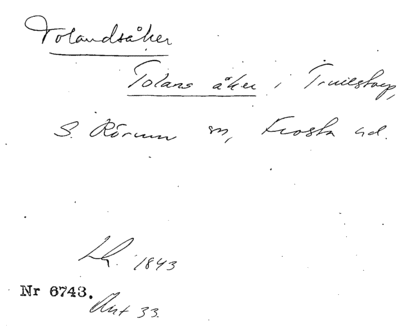 Tolandsåker
Tolans åker i Truelstorp,
S. Rörum sn, Frosta hd.
Lh. 1843
Nr 6743.
Ant 33.